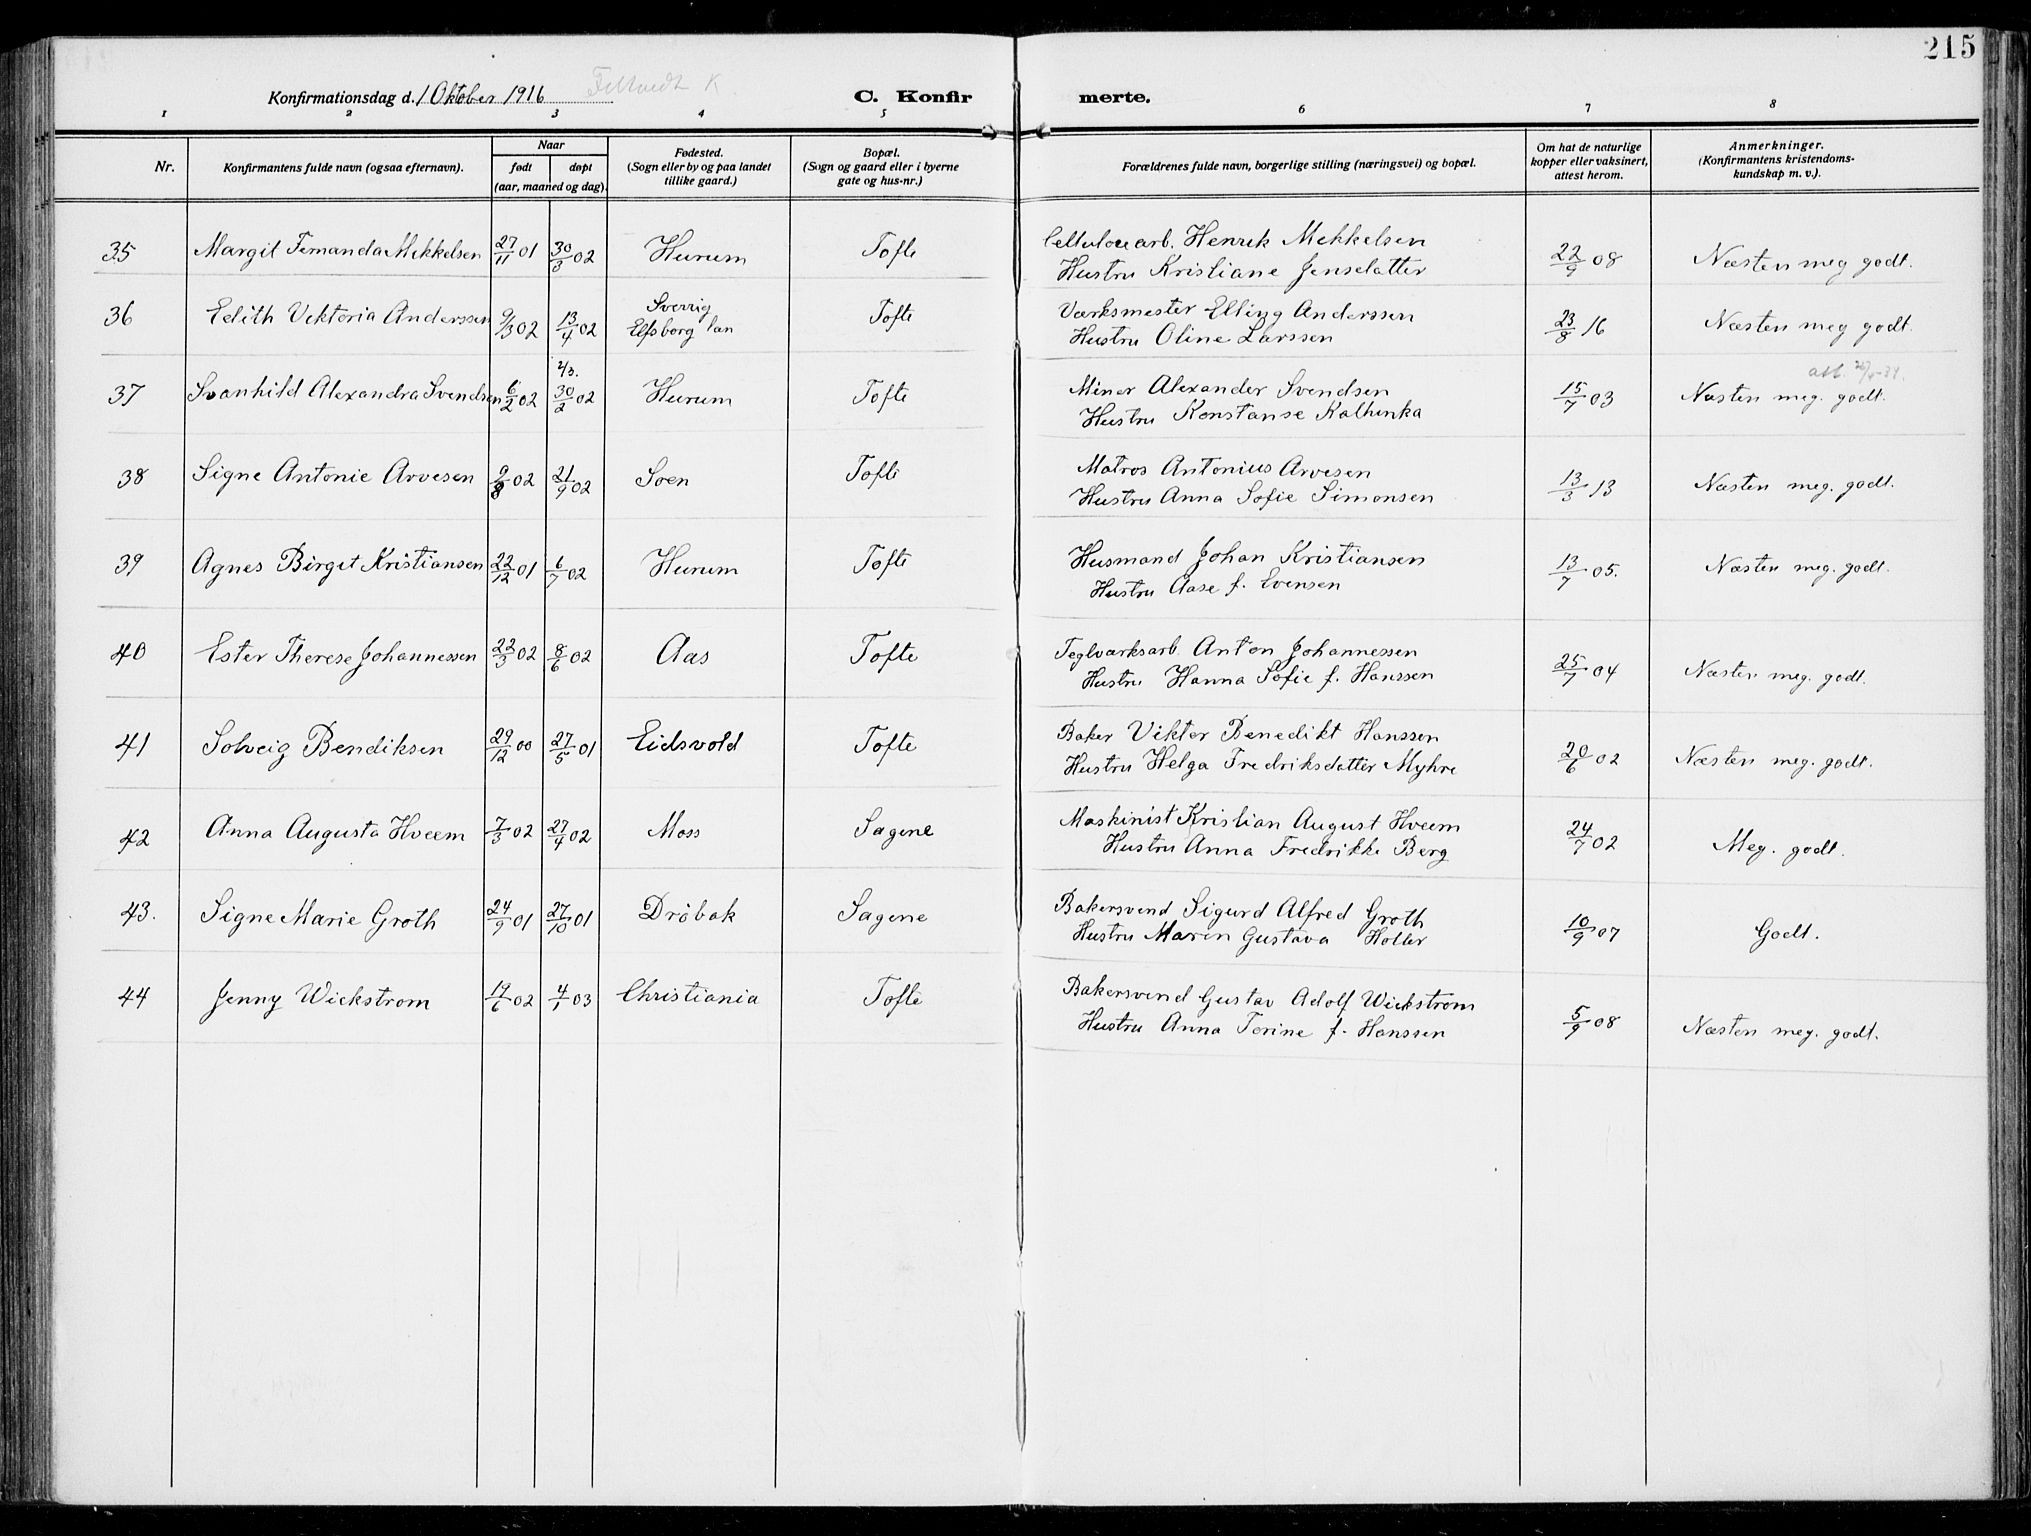 215
Konfirmationsdag d. 1 Oktober 1916 Filtvedt K.
C. Konfir merte.
1 2 3 4 5 6 7 8
Nr.
Konfirmantens fulde navn (ogsaa efternavn).
Naar
født døpt
(aar, maaned og dag).
Fødested.
(Sogn eller by og paa landet
tillike gaard.)
Bopæl.
(Sogn og gaard eller i byerne
gate og hus-nr.)
Forældrenes fulde navn, borgerlige stilling (næringsvei) og bopæl.
Om hat de naturlige
kopper eller vaksinert,
attest herom.
Anmerkninger.
(Konfirmantens kristendoms-
kundskap m. v.).
35 Margit Fernanda Mikkelsen 27/11 01 30/3 02 Hurum Tofte Cellulosearb. Henrik Mekkelsen
Hustru Kristiane Jensdatter 22/9 08 Næsten meg godt.
36 Edith Viktoria Anderssen 9/3 02 13/4 02 Sverrig
Elfsborg lan Tofte Værksmester Elling Anderssen
Hustru Oline Larssen 23/8 16 Næsten meg godt.
37 Svanhild Alexandra Svendsen 6/2 02 2/3. 30/2 02 Hurum Tofte Miner Alexander Svendsen
Hustru Konstanse Kathinka 15/7 03 Næsten meg. godt.
att.
38 Signe Antonie Arvesen 9/8 02 21/9 02 Soen Tofte Matros Antonius Arvesen
Hustru Anna Sofie Simonsen 13/3 13 Næsten meg. godt.
39 Agnes Birgit Kristiansen 22/12 01 6/7 02 Hurum Tofte Husmand Johan Kristiansen
Hustru Aase f. Evensen 13/7 05. Næsten meg. godt.
40 Ester Therese Johannessen 22/3 02 8/6 02 Aas Tofte Teglværksarb. Anton Johannessen
Hustru Hanna Sofie f. Hanssen 25/7 04 Næsten meg. godt.
41 Solveig Bendiksen 29/12 00 27/5 01 Eidsvold Tofte Baker Vikter Benedikt Hanssen
Hustru Helga Fredriksdatter Myhre 20/6 02 Næsten meg. godt.
42 Anna Augusta Hveem 7/3 02 27/4 02 Moss Sagene Maskinist Kristian August Hveem
Hustru Anna Fredrikke Berg 24/7 02 Meg. godt.
43. Signe Marie Groth 24/9 01 27/10 01 Drøbak Sagene Bakersvend Sigurd Alfred Groth
Hustru Maren Gustava Holter 10/9 07 Godt.
44 Jenny Wickstrom 19/6 02 4/1 03 Christiania Tofte Bakersvend Gustav Adolf Wickstrom
Hustru Anna Torine f. Hanssen 5/9 08 Næsten meg. godt.